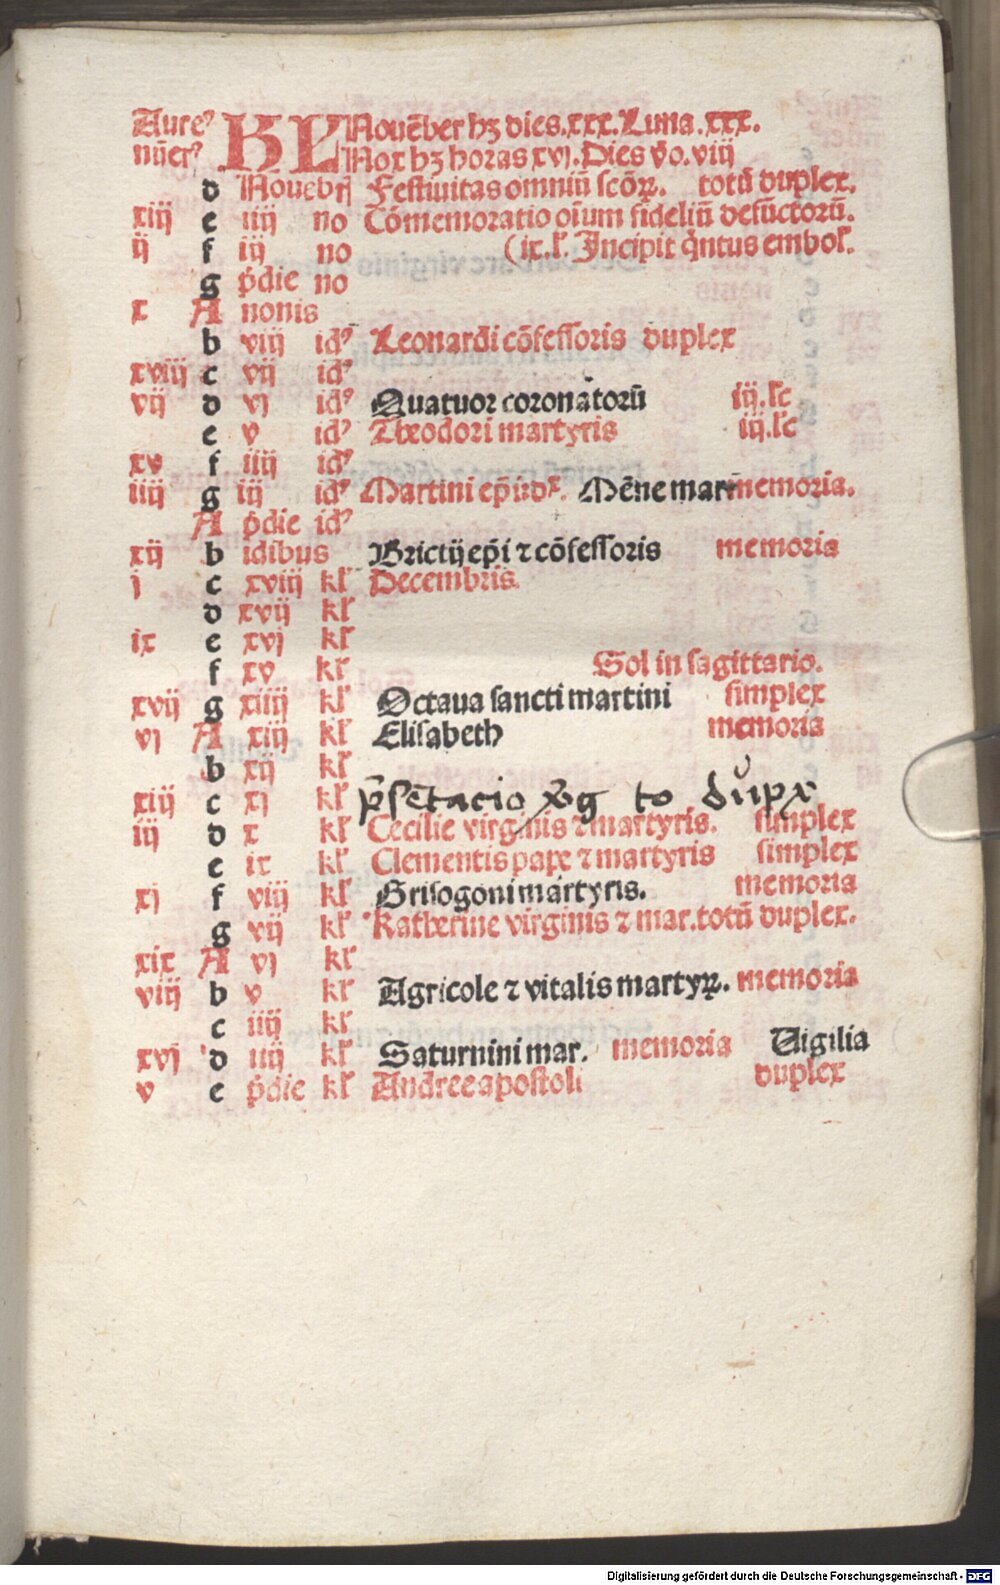 Aureꝰ KL Nouēber hꝫ dies.xxx.Luna.xxx.
nūerꝰ Nox hꝫ horas xvj.Dies ṽo.viij
d Nouēbrꝭ Festiuitas omniū scōꝝ. totū duplex.
xiij e iiij no Cōmemoratio oīum fideliū defūctorū.
ij f iij no (ix.l.Incipit q̄ntus embol.
g p̄die no
x A nonis
b viij idꝰ Leonardi cōfessoris duplex
xviij c vij idꝰ
vij d vj idꝰ Quatuor coronatorū iij.lc̄
e v idꝰ Theodori martyris iij.lc̄
xv f iiij idꝰ
iiij g iij idꝰ Martini ep̄i Mēne mar memoria.
A p̄die idꝰ
xij b idibus Brictij ep̄i ⁊ cōfessoris memoria
j c xviij kl Decembris.
d xvij kl
ix e xvj kl
f xv kl Sol in sagittario.
xvij g xiiij kl Octaua sancti martini simplex
vj A xiij kl Elisabeth memoria
b xij kl
xiij c xj kl p̄sētacio to dupx
iij d x kl Cecilie virginis ⁊ martyris. simplex
e ix kl Clementis pape ⁊ martyris simplex
xj f viij kl Grisogoni martyris. memoria
g vij kl Katherine virginis ⁊ mar.totū duplex.
xix A vj kl
viij b v kl Agricole ⁊ vitalis martyꝝ. memoria
c iiij kl
xvj d iij kl Saturnini mar. memoria Vigilia
v e p̄die kl Andree apostoli duplex
Digitalisierung gefördert durch die Deutsche Forschungsgemeinschaft - DFG